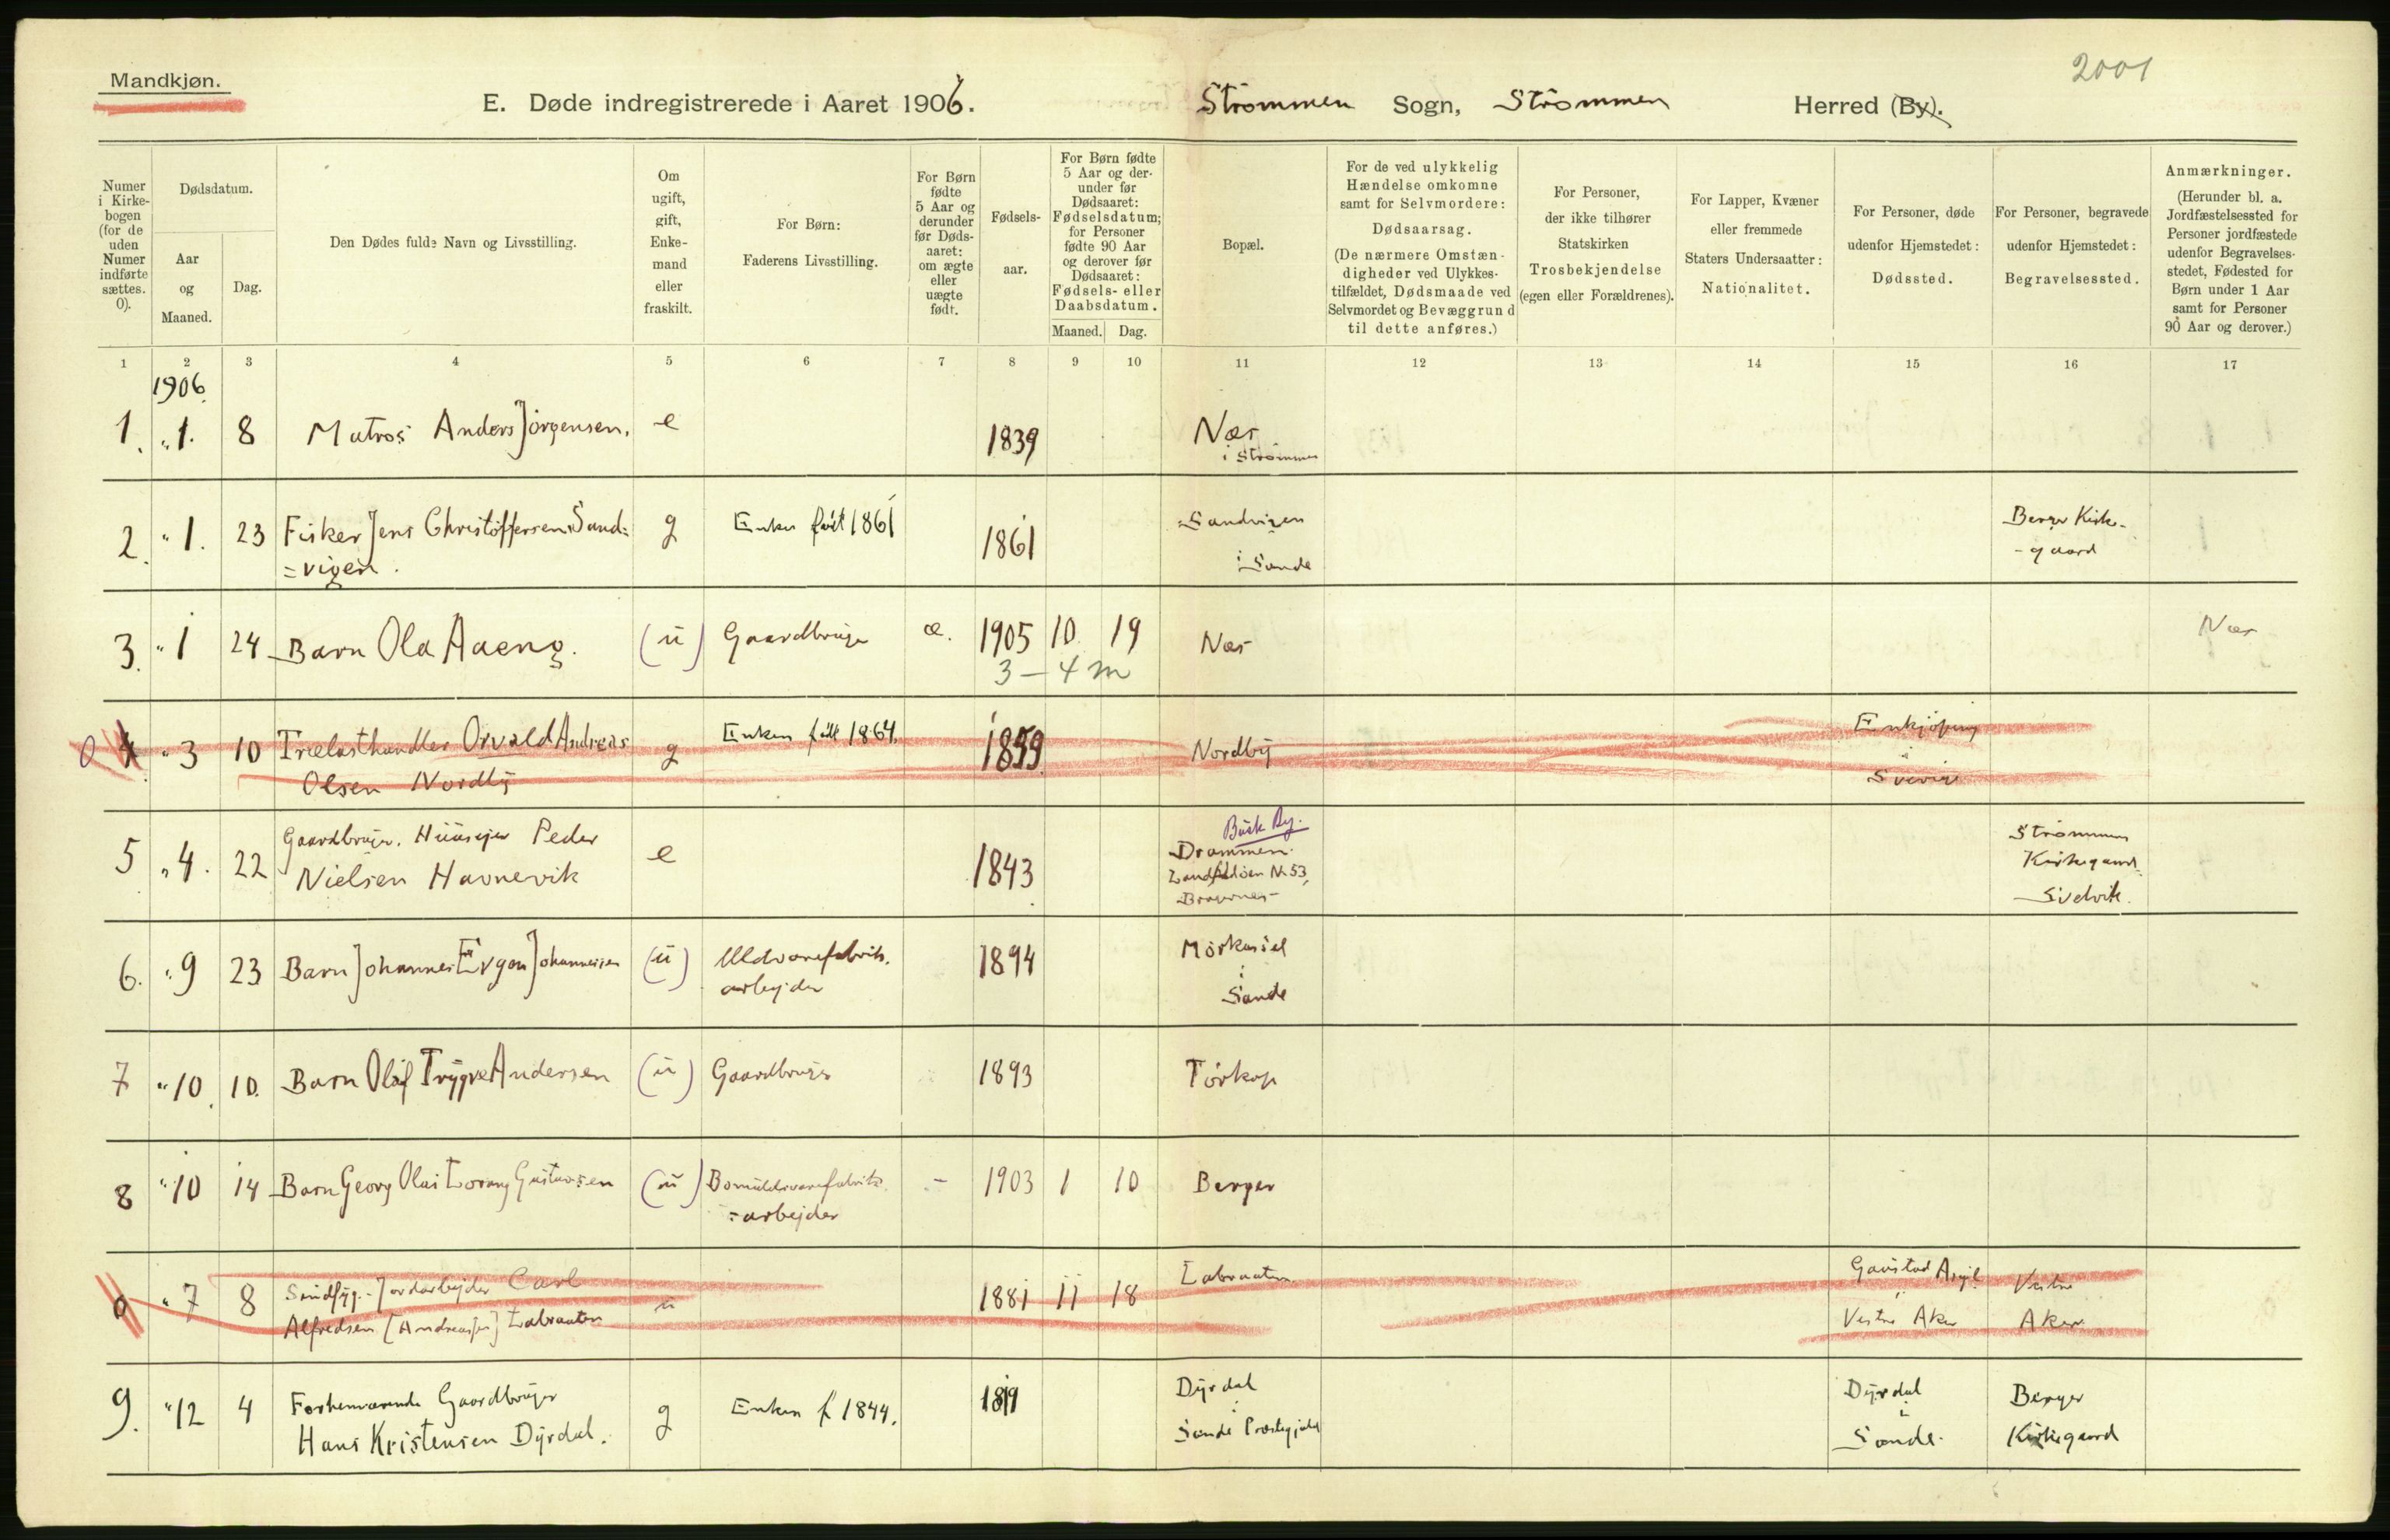 2001
Mandkjøn.
E. Døde indregistrerede i Aaret 1906. Strömmen Sogn, Strömmen Herred (By).
Numer i Kirkebogen (for de uden Numer indførte sættes. 0).
Dødsdatum.
Aar og Maaned.
Dag.
Den Dødes fulde Navn og Livsstilling.
Om ugift, gift, Enkemand eller fraskilt.
For Børn:
Faderens Livsstilling.
For Børn fødte 5 Aar og derunder før Dødsaaret: om ægte eller uægte født.
Fødselsaar.
For Børn fødte 5 Aar og derunder før Dødsaaret: Fødselsdatum; for Personer fødte 90 Aar og derover før Dødsaaret: Fødsels- eller Daabsdatum.
Maaned. Dag.
Bopæl.
For de ved ulykkelig Hændelse omkomne samt for Selvmordere:
Dødsaarsag.
(De nærmere Omstændigheder ved Ulykkestilfældet, Dødsmaade ved Selvmordet og Bevæggrund til dette anføres.)
For Personer, der ikke tilhører Statskirken
Trosbekjendelse
(egen eller Forældrenes).
For Lapper, Kvæner eller fremmede Staters Undersaatter:
Nationalitet.
For Personer, døde udenfor Hjemstedet:
Dødssted.
For Personer, begravede udenfor Hjemstedet:
Begravelsessted.
Anmærkninger.
(Herunder bl. a. Jordfæstelsessted for Personer jordfæstede udenfor Begravelsesstedet, Fødested for Børn under 1 Aar samt for Personer 90 Aar og derover.)
1 2 3 4 5 6 7 8 9 10 11 12 13 14 15 16 17
1906.
1. " 1. 8 Matros Anders Jörgensen. e 1839 Næs
i Strömmen
2. " 1. 23 Fisker Jens Christoffersen Sand= g Enken född 1861 1861 Sandvigen Berger Kirke-
=vigen. i Sande -gaard
3. " 1 24 Barn Ola Aaeng. (u) Gaardbruger æ. 1905 10 19 Næs Næs
3 - 4 m
0 4 " 3 10 Trælasthandler Orvald Andreas g Enken född 1864. 1859 Nordby Enkjöping
Olsen Nordby i Sverige
5 " 4. 22 Gaardbruger. Huusejer Peder e 1843 Busk By. Drammen. Strömmens
Nielsen Havnevik Landfaldöen N. 53, Kirkegaard
Bragernes Svelvik.
6. " 9 23 Barn Johannes Ervgon Johannessen (u) Uldvarefabrik. 1894 Mörkassel
arbejder i Sande
7 " 10. 10. Barn Olaf Trygve Andersen (u) Gaardbruger 1893 Törkop
8 " 10 14 Barn Georg Olai Lorang Gustavsen (u) Bomuldsvarefabrik - 1903 1 10 Berger
=arbejder
0 " 7 8 Sindsyg. Jordarbejder Carl u 1881 11 18 Labraaten Gaustad Asyl Vestre
Alfredsen [Andreassen] Labraaten Vestre Aker Aker
9. " 12 4 Forhenværende Gaardbruger g Enken f 1844. 1819 Dyrdal Dyrdal Berger
Hans Kristensen Dyrdal. i Sande Præstegjeld i Sande. Kirkegaard